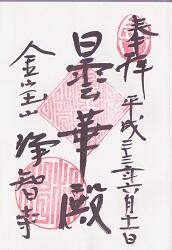 奉拝
平成二十三年六月十二日
曇華殿
金宝山
浄智寺